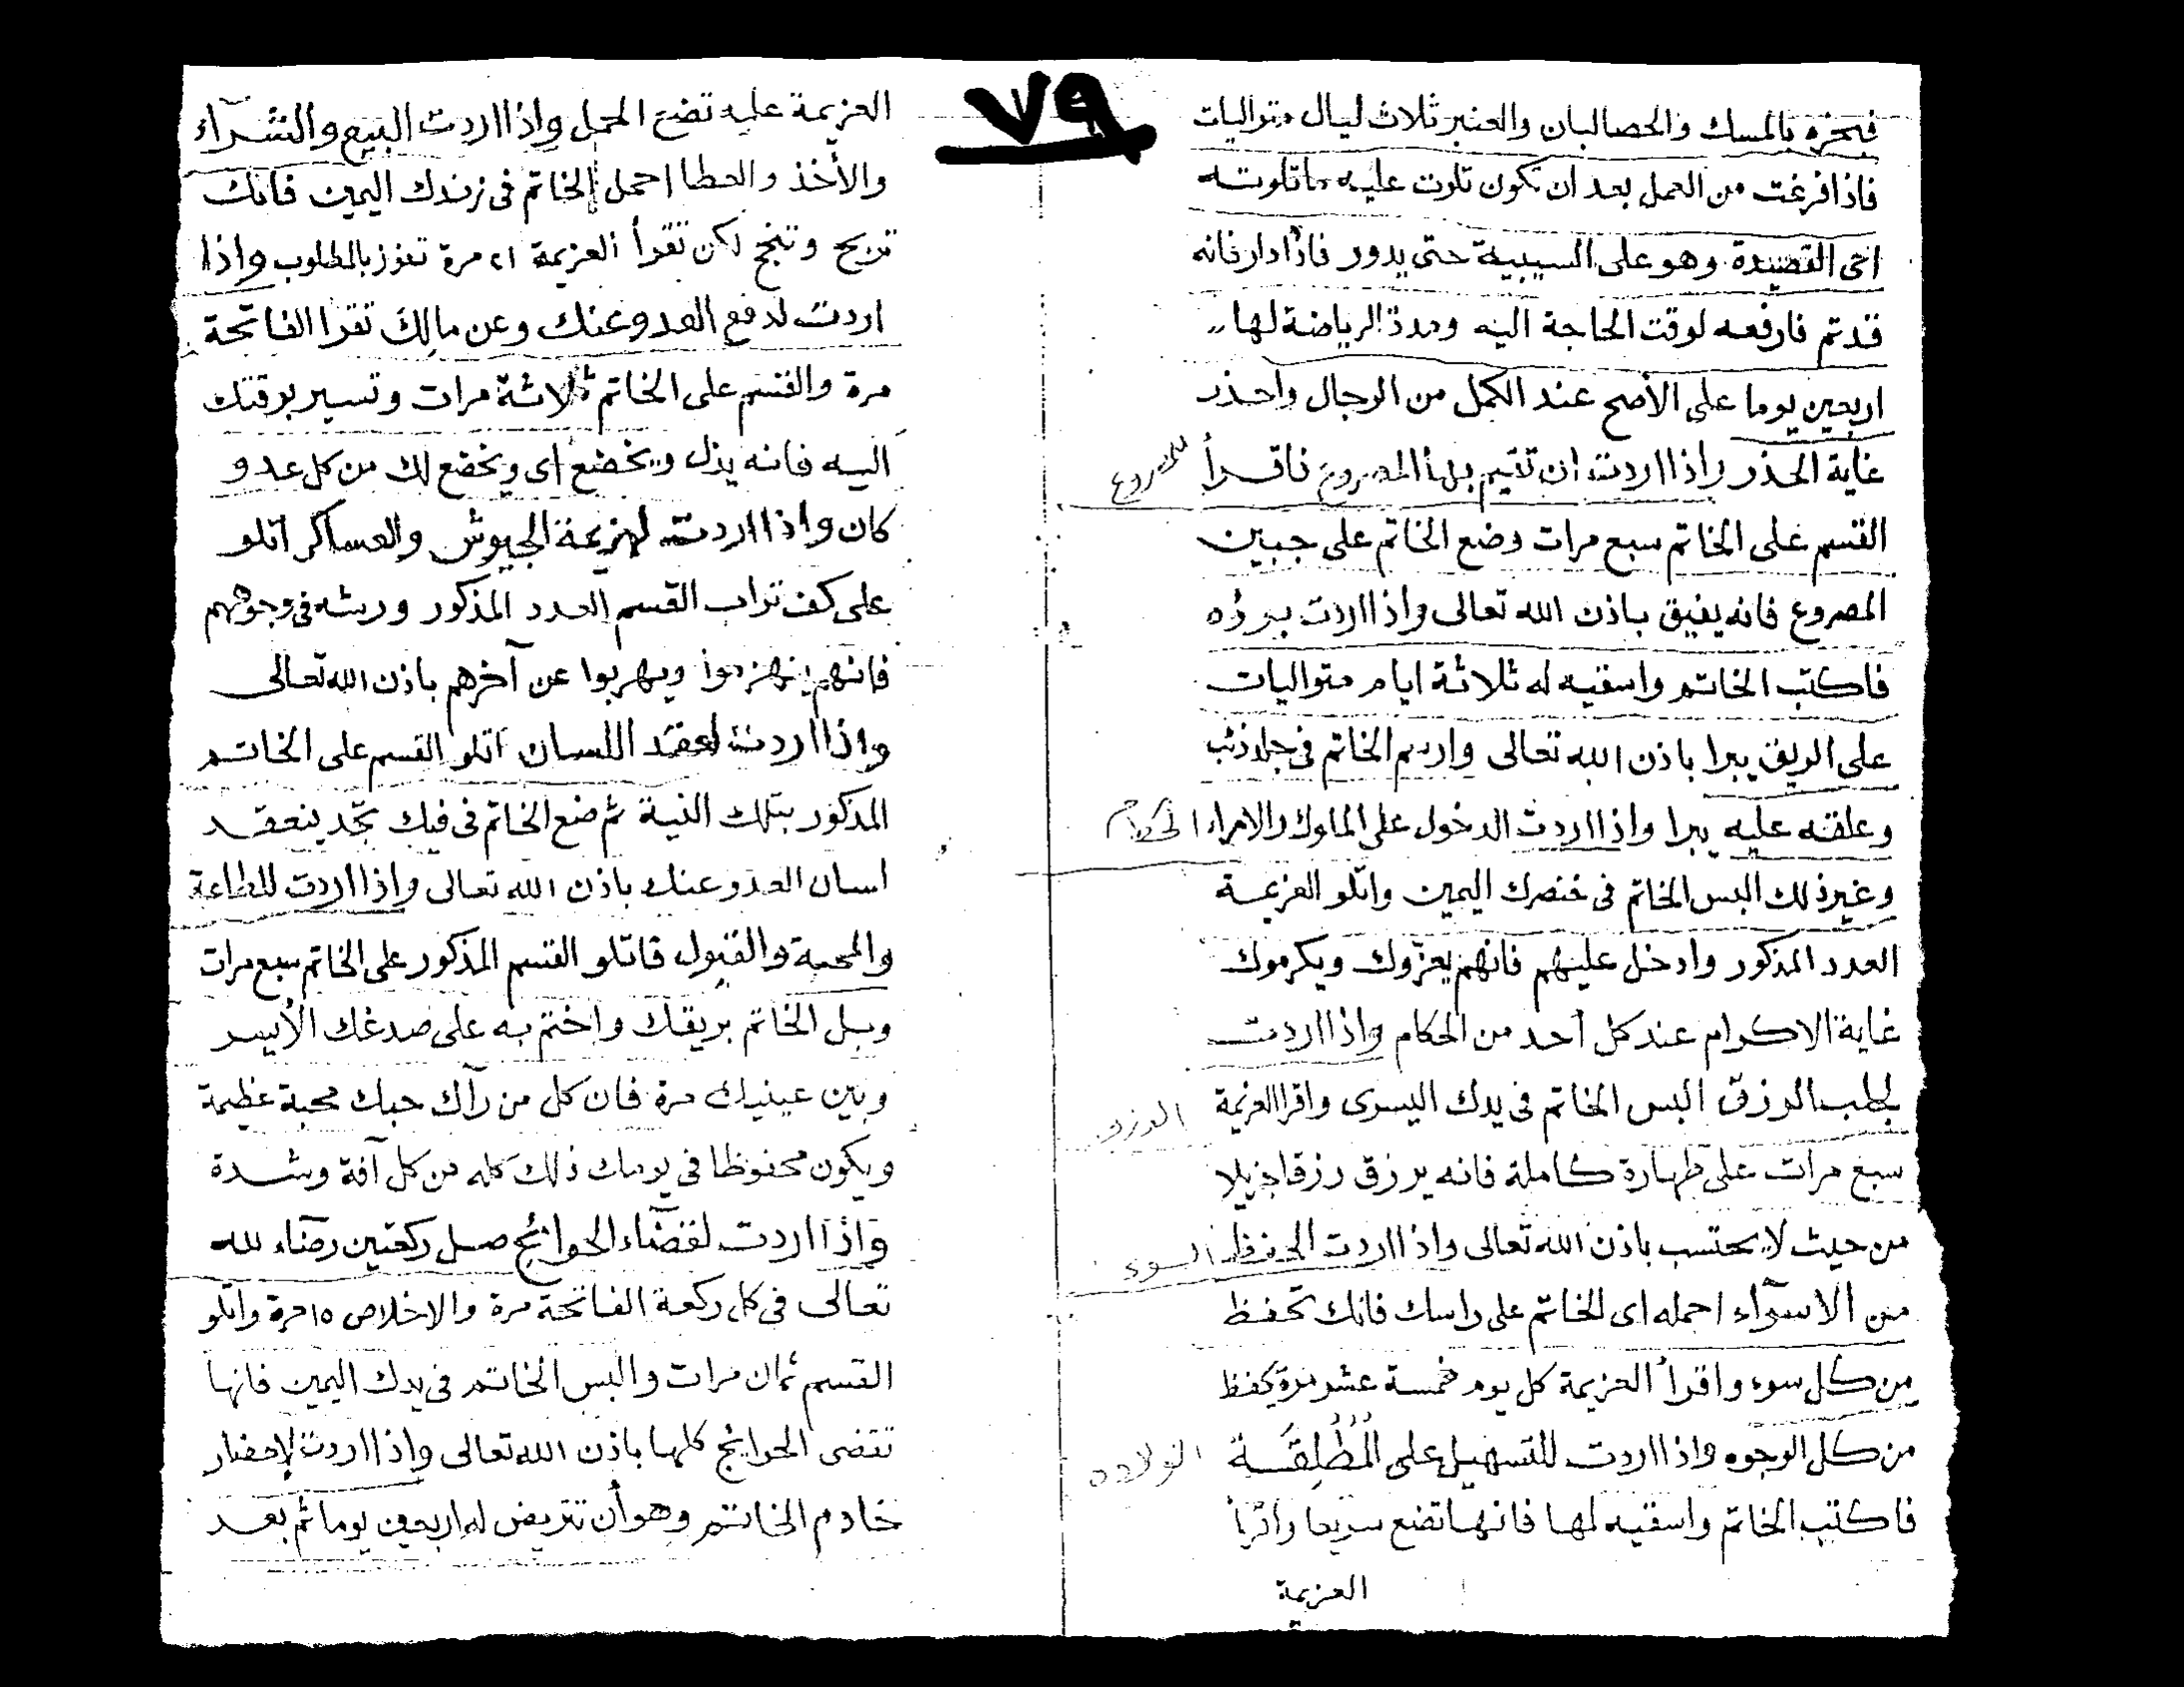 ٧٩
فبخره بالمسك والحصالبان والعنبر ثلاث ليال متواليات
فاذا فرغت من العمل بعد ان تكون تلوت عليه ما تلوته
اى القصيدة وهو على السيبية حتى يدور فاذا دار فانه
قد تم فارفعه لوقت الحاجة اليه ومدة الرياضة لها
اربعين يوما على الأصح عند الكمل من الرجال واحذر
غاية الحذر واذا اردت ان تقيم بها المصروع فاقرأ
للمصروع
القسم على الخاتم سبع مرات وضع الخاتم على جبين
المصروع فانه يفيق باذن الله تعالى واذا اردت برؤه
فاكتب الخاتم واسقيه له ثلاثة ايام متواليات
على الريق يبرا باذن الله تعالى وارسم الخاتم فى جلد ذئب
وعلقه عليه يبرا واذا اردت الدخول على الملوك والامراء
الحكام
وغير ذلك البس الخاتم فى خنصرك اليمين واتلو العزيمة
العدد المذكور وادخل عليهم فانهم يعزوك ويكرموك
غاية الاكرام عند كل أحد من الحكام واذا اردت
لجلب الرزق البس الخاتم فى يدك اليسرى واقرا العزيمة
الرزق
سبع مرات على طهارة كاملة فانه يرزق رزقا جزيلا
من حيث لا يحتسب باذن الله تعالى واذا اردت الحفظ
السوء
من الاسوآء احمله اى الخاتم على راسك فانك تحفظ
من كل سوء واقرأ العزيمة كل يوم خمسة عشر مرة تحفظ
من كل الوجوه واذا اردت للتسهيل على المُطْلِقَة
الولاده
فاكتب الخاتم واسقيه لها فانها تضع سريعا واقرأ
العزيمة
العزيمة عليه تضع الحمل واذا اردت البيع والشرآء
والأخذ والعطا احمل الخاتم فى زندك اليمين فانك
تربح وتنجح لكن تقرأ العزيمة ٢١ مرة تفوز بالمطلوب واذا
اردت لدفع العدو عنك وعن مالك تقرا الفاتحة
مرة والقسم على الخاتم ثلاثة مرات وتسير بوقتك
اليه فانه يذل ويخضع اى ويخضع لك من كل عدو
كان واذا اردت لهزيمة الجيوش والعساكر اتلو
على كف تراب القسم العدد المذكور ورشه فى وجوههم
فانهم ينهزموا ويهربوا عن آخرهم باذن الله تعالى
واذا اردت لعقد اللسان اتلو القسم على الخاتم
المذكور بتلك النية ثم ضع الخاتم فى فيك تجد ينعقد
لسان العدو عنك باذن الله تعالى واذا اردت للطاعة
والمحبة والقبول فاتلو القسم المذكور على الخاتم سبع مرات
وبل الخاتم بريقك واختم به على صدغك الأيسر
وبين عينيك مرة فان كل من رآك حبك محبة عظيمة
ويكون محفوظا فى يومك ذلك كله من كل آفة وشدة
واذا اردت لقضاء الحوائج صل ركعتين رضاء لله
تعالى فى كل ركعة الفاتحة مرة والاخلاص ١٥ مرة واتلو
القسم ثمان مرات والبس الخاتم فى يدك اليمين فانها
تقضى الحوائج كلها باذن الله تعالى واذا اردت لإحضار
خادم الخاتم وهو أن تتريض له اربعين يوما ثم بعد